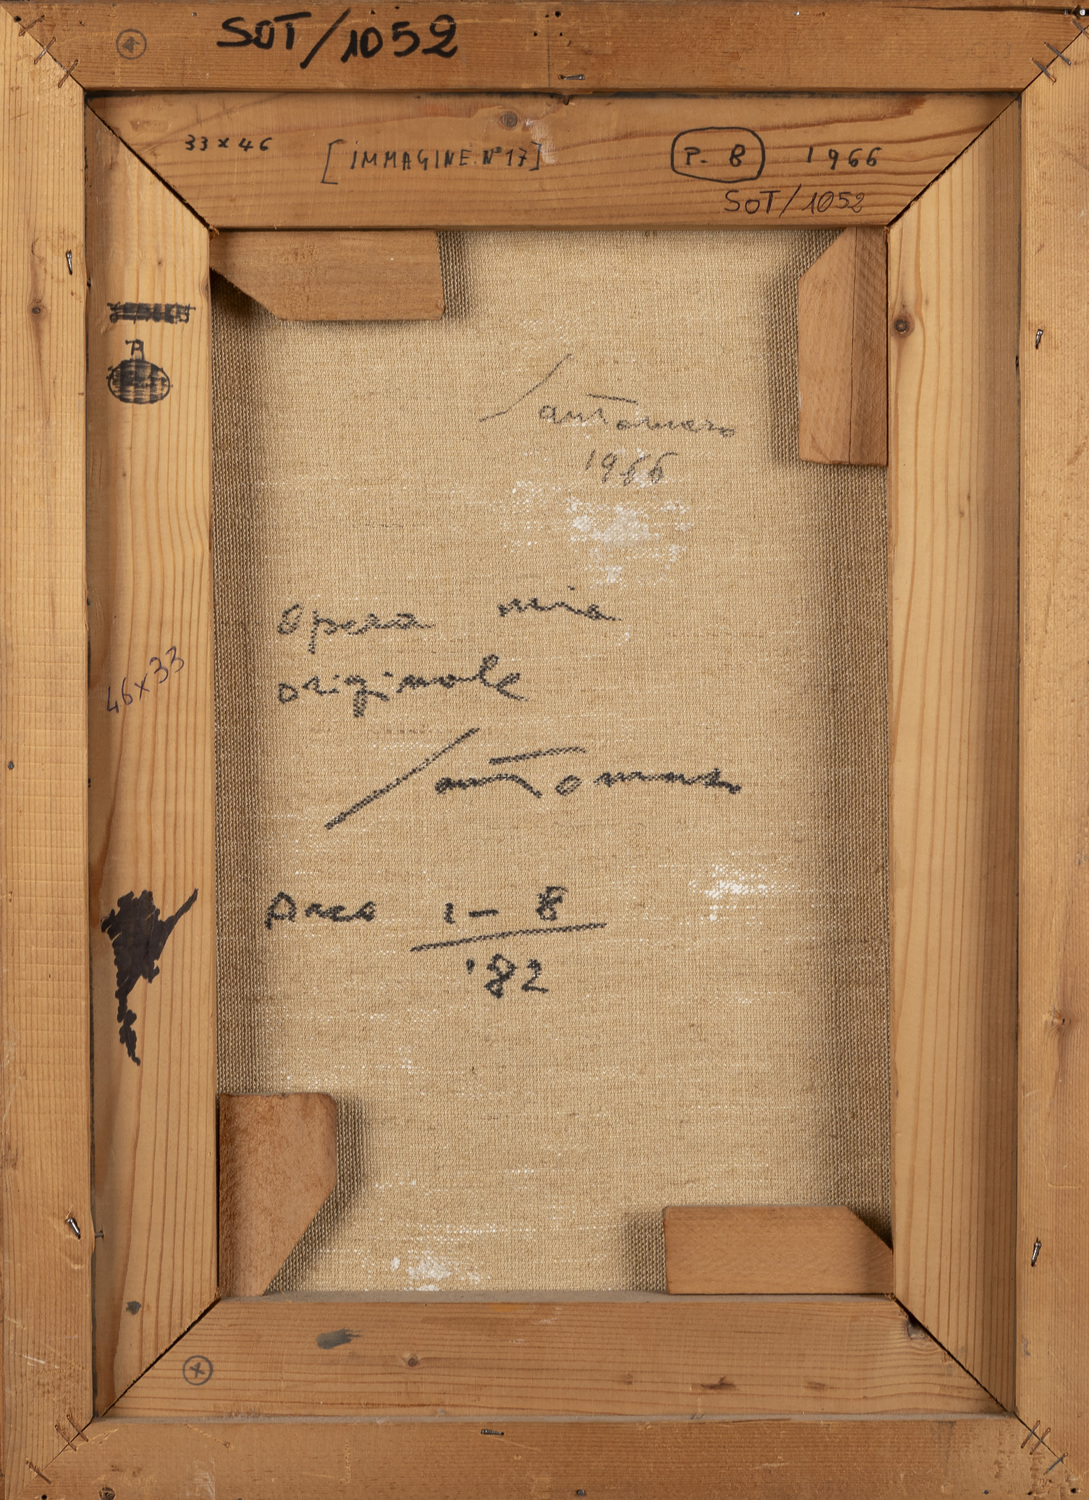 SOT/1052
33 x 46 [IMMAGINE N° 17] P. 8 1966
SOT/1052
A
Santomaso
1966
Opera mia
originale
46x33
Santomaso
1 - 8
'82